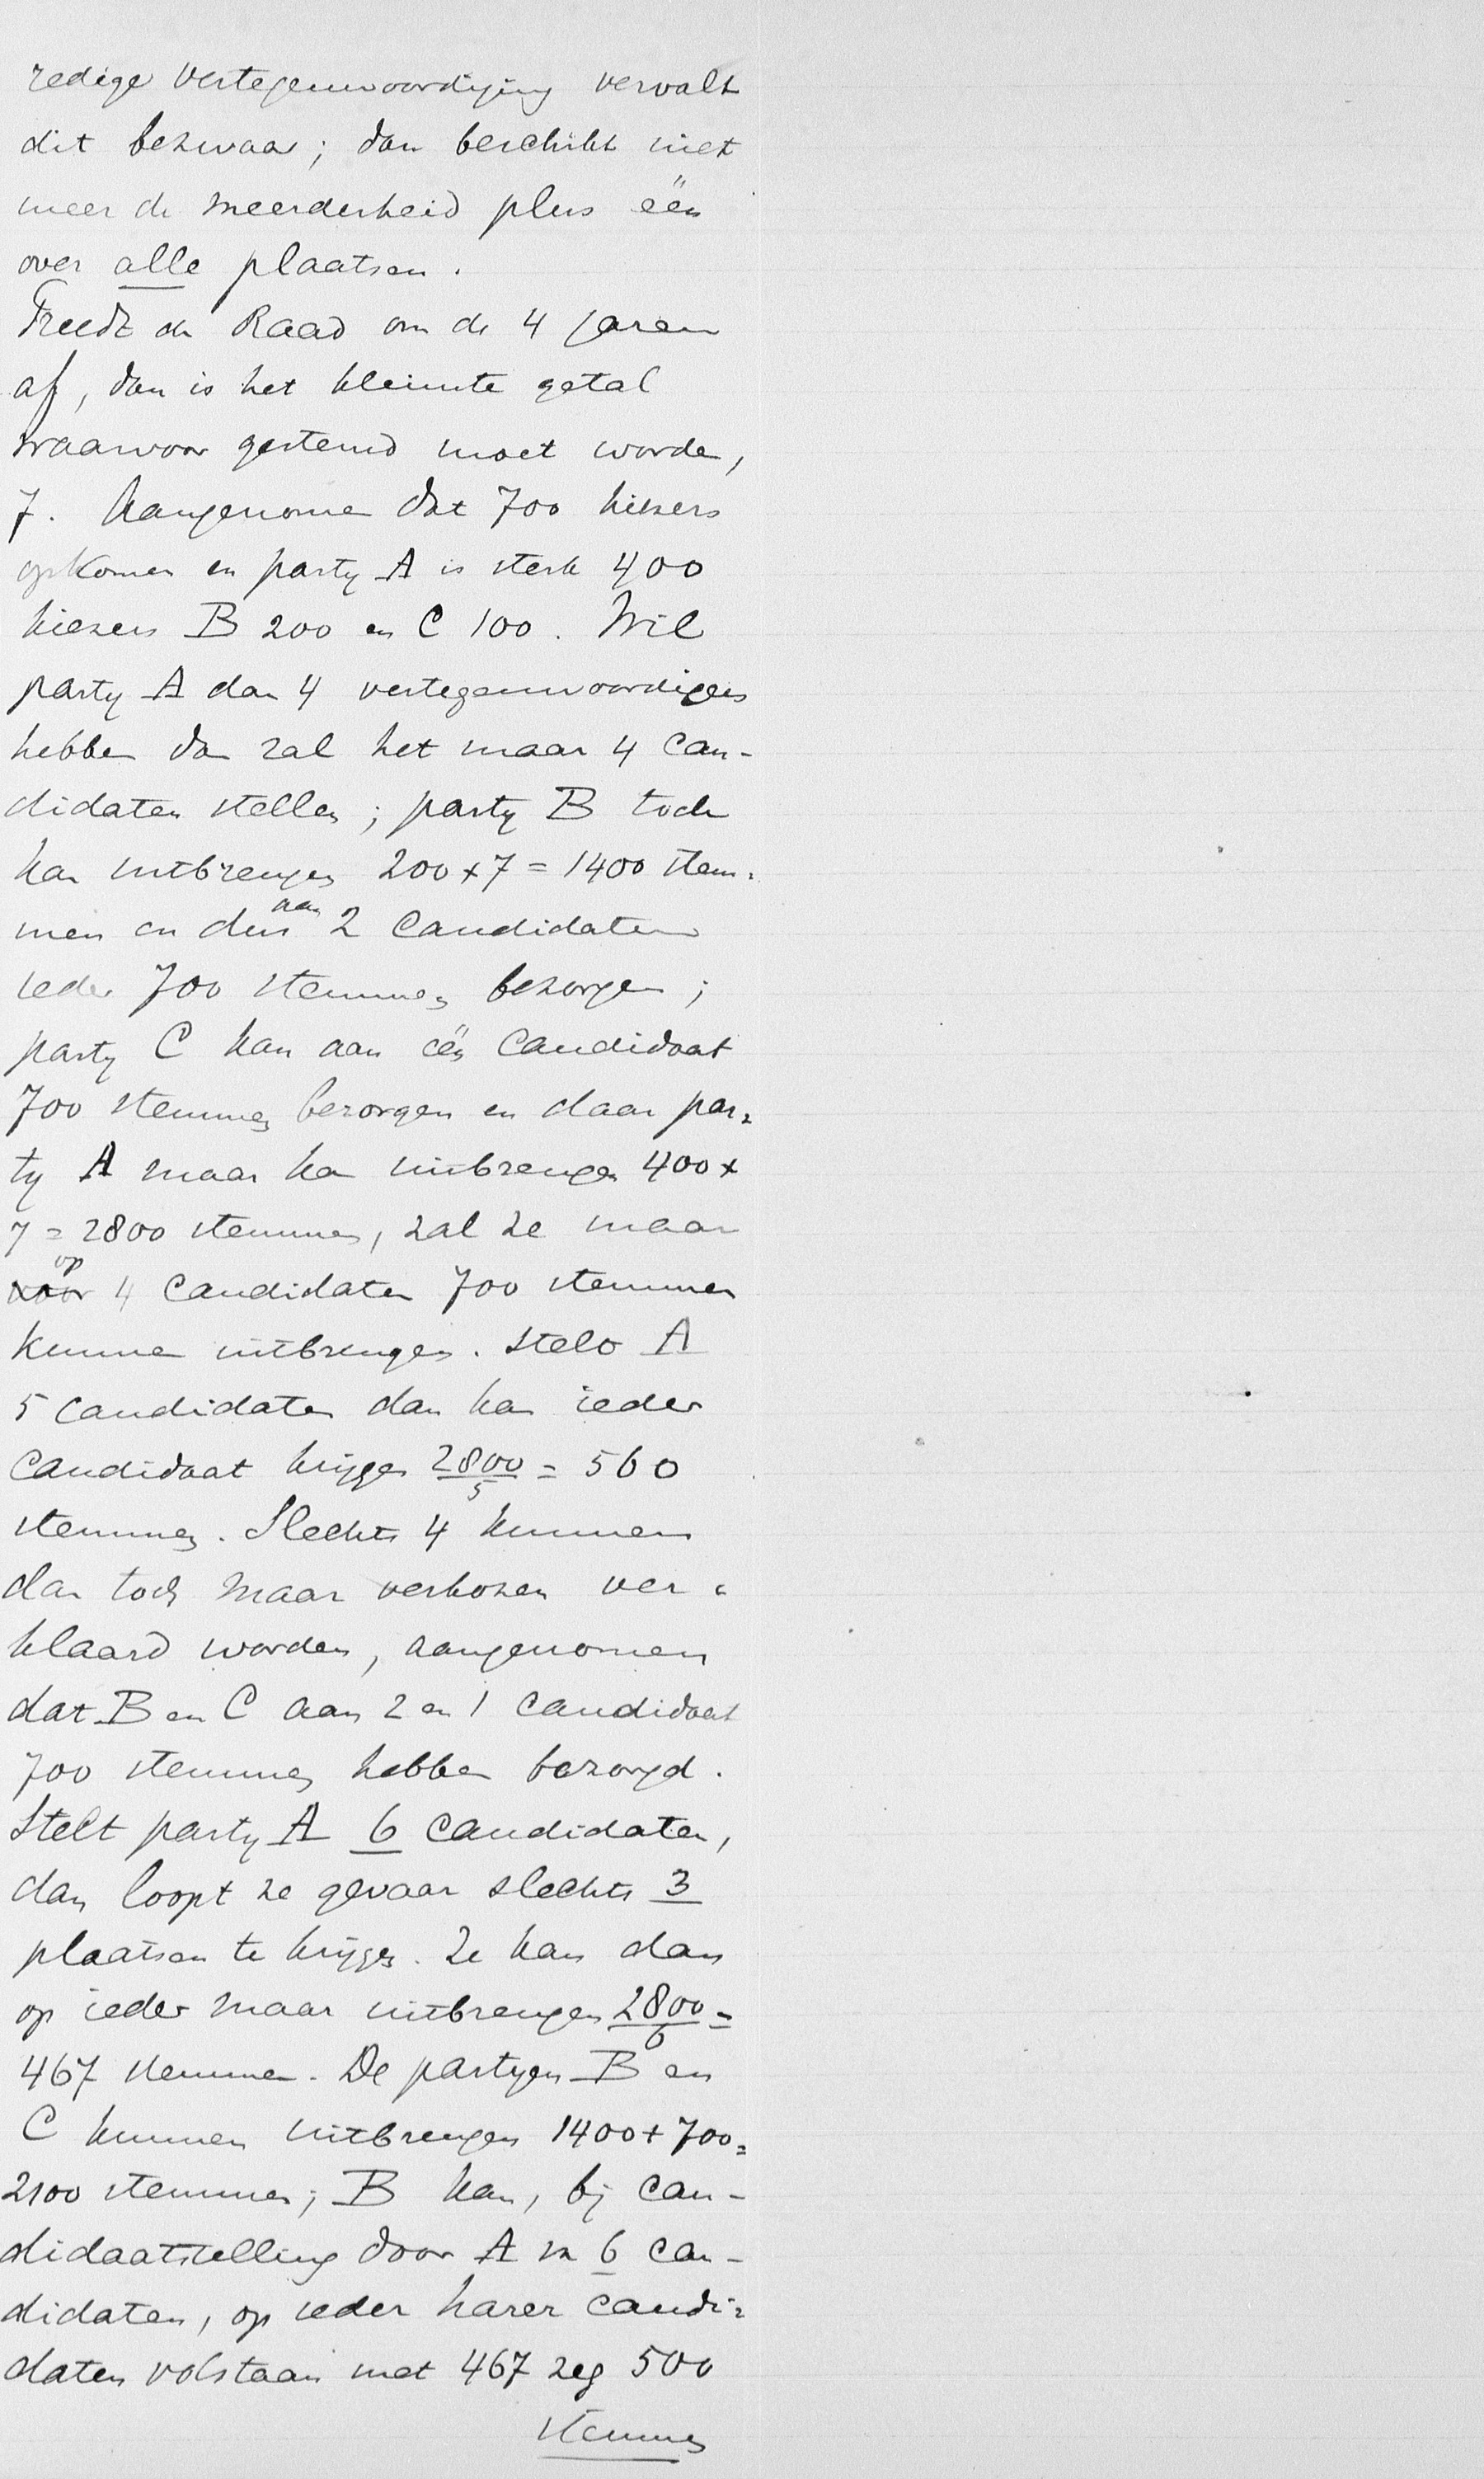 redige vertegenwoordiging vervalt
dit bezwaar; dan beschikt niet
meer de meerderheid plus één
over alle plaatsen.
Treedt de Raad om de 4 jaren
af, dan is het kleinste getal
waarvoor gestemd moet worden,
7. Aangenomen dat 700 kiezers
opkomen en party A is sterk 400
kiezers B 200 en C 100. Wil
party A dan 4 vertegenwoordigers
hebben dan zal het maar 4 can-
didaten stellen; party B toch
kan uitbrengen 200 x 7 = 1400 stem-
men en dus aan 2 candidaten
ieder 700 stemmen bezorgen;
party C kan aan één candidaat
700 stemmen bezorgen en daar par-
ty A maar kan uitbrengen 400 x
7 = 2800 stemmen, zal ze maar
voor op 4 candidaten 700 stemmen
kunnen uitbrengen. Steld A
5 candidaten dan kan ieder
candidaat krijgen 2800/5 = 560
stemmen. Slechts 4 kunnen
dan toch maar verkozen ver-
klaard worden, aangenomen
dat B en C aan 2 en 1 candidaat
700 stemmen hebben bezorgd.
Stelt party A 6 candidaten,
dan loopt ze gevaar slechts 3
plaatsen te krijgen. Ze kan dan
op ieder maar uitbrengen 2800/6 =
467 stemmen. De partyen B en
C kunnen uitbrengen 1400 + 700 =
2100 stemmen; B kan, bij can-
didaatstelling door A van 6 can-
didaten, op ieder harer candi-
daten volstaan met 467 zeg 500
stemmen